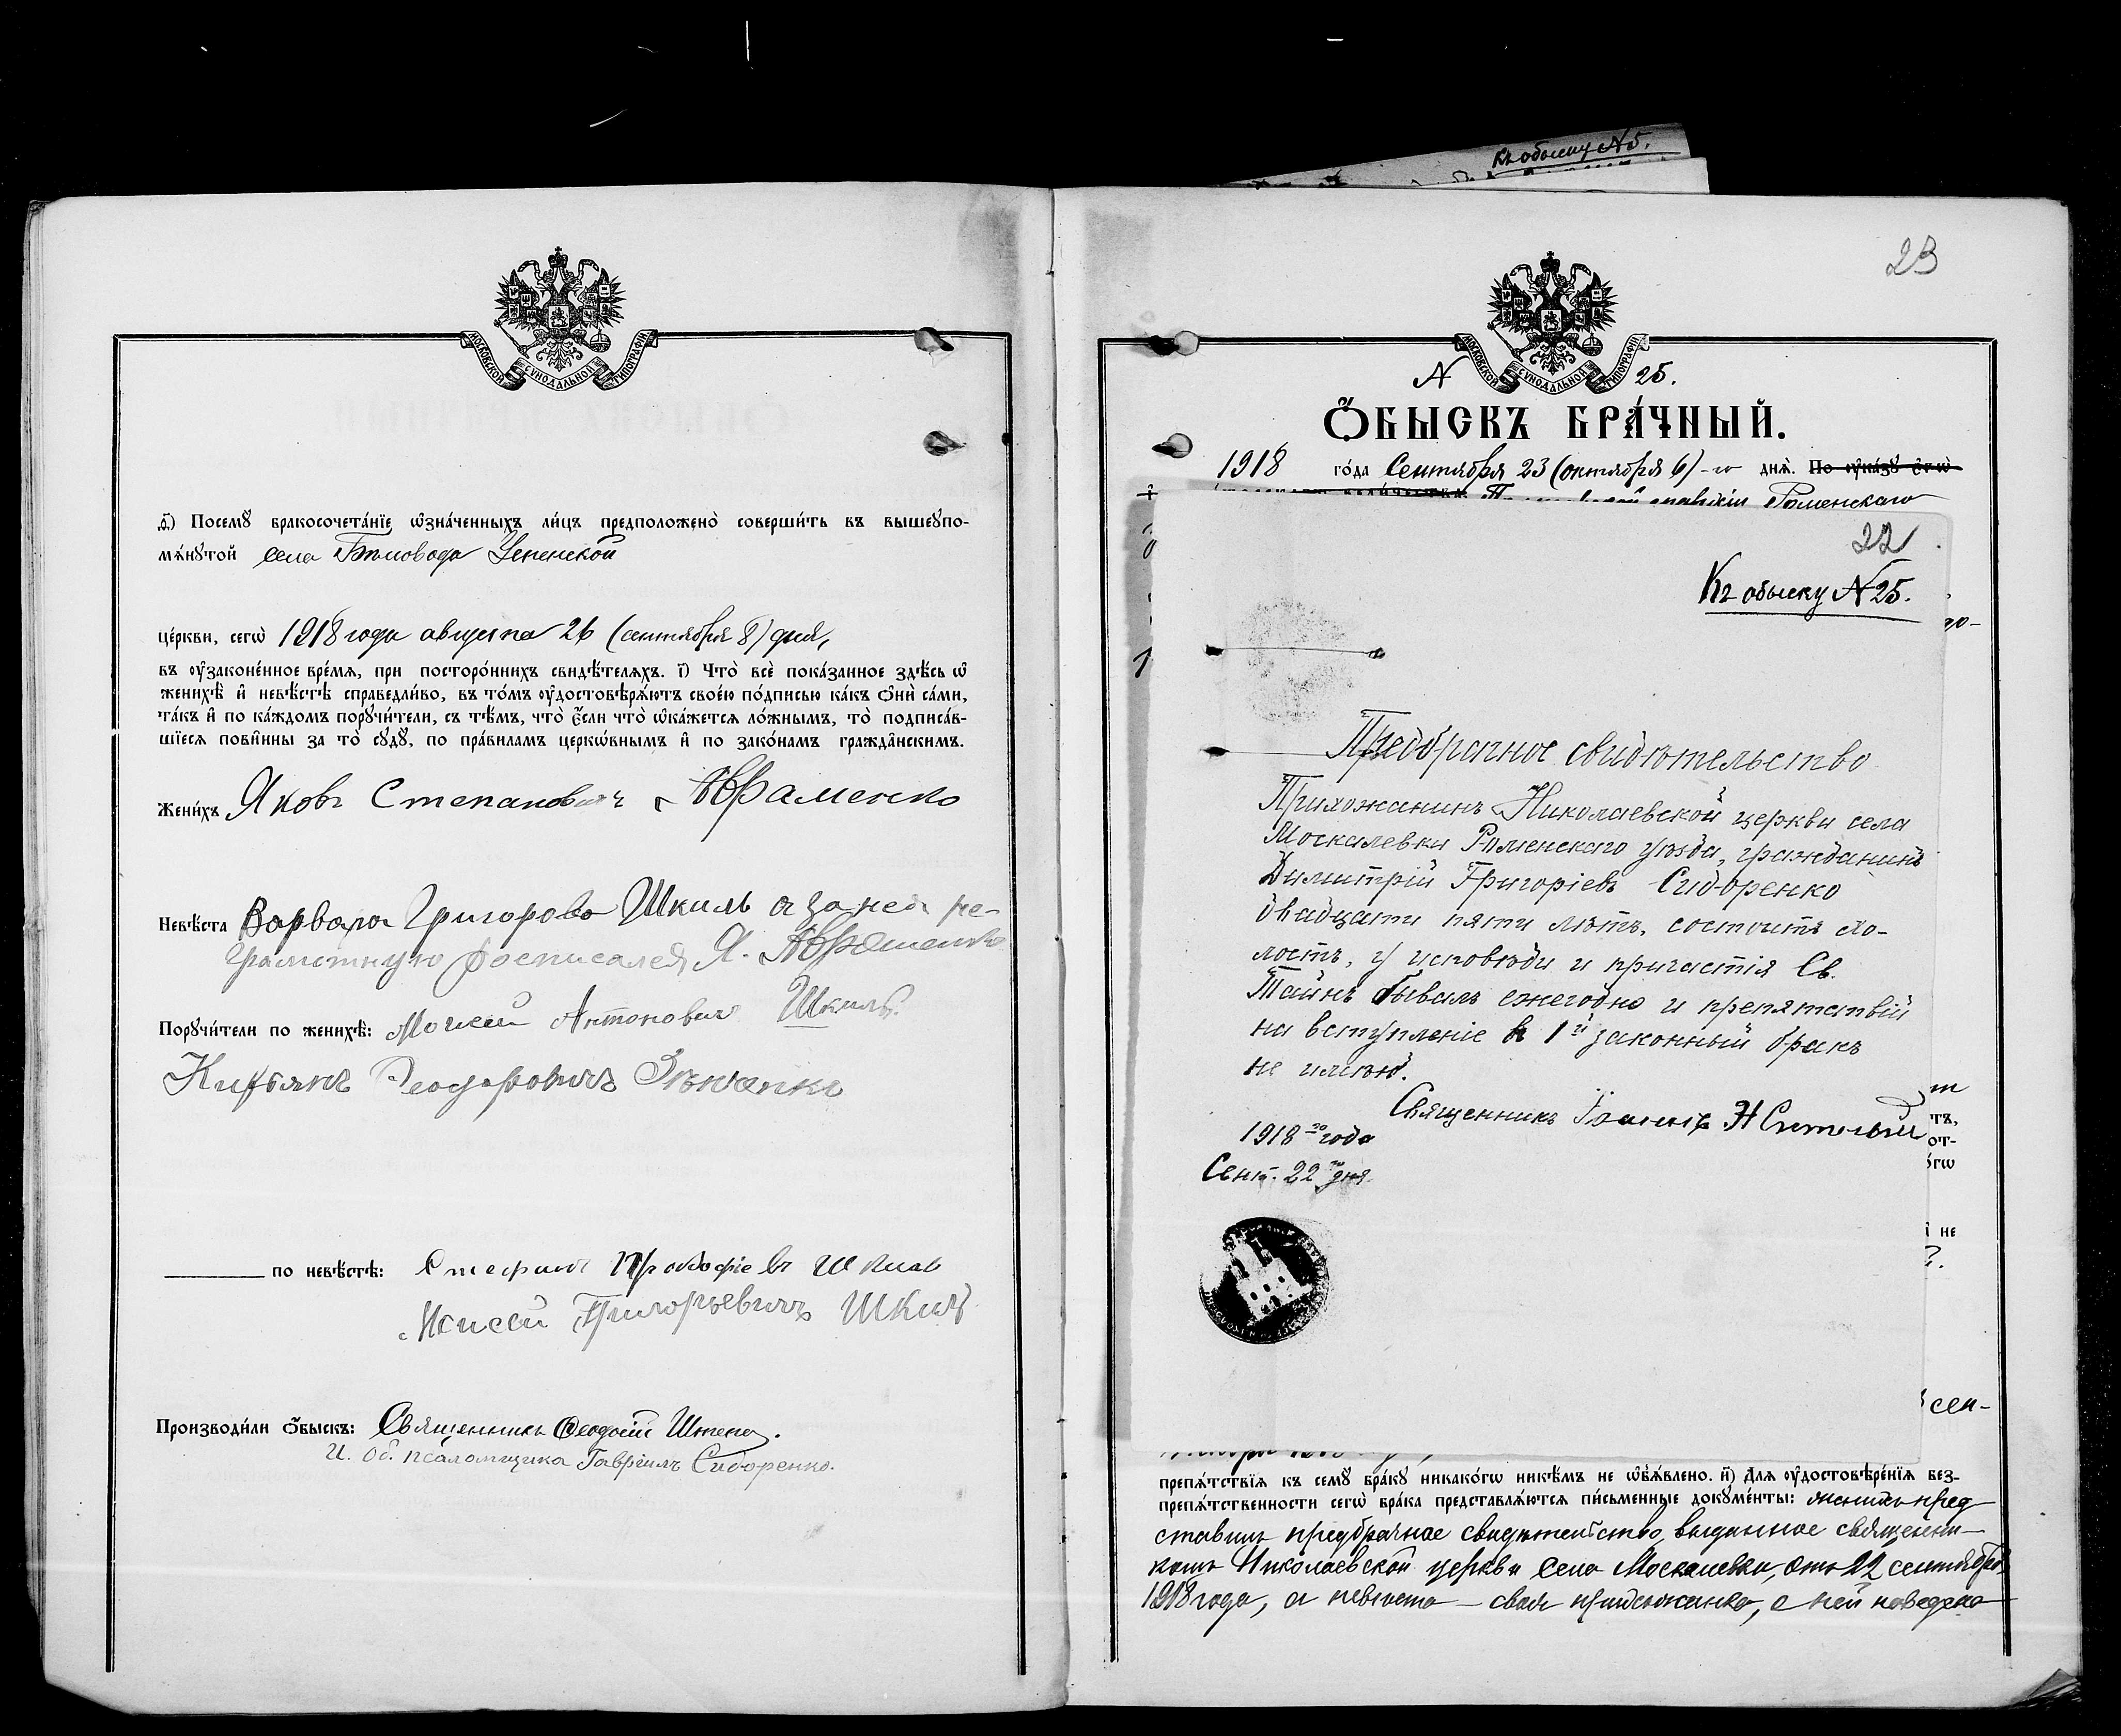 Къ обыску №5.
МОСКОВСКОЙ СѴНОДАЛЬНОЙ ТИПОГРАФІИ
ѳ҃) Посемꙋ̀ бракосочета́нїе ѡ҆зна́ченныхъ ли́цъ предположено̀ соверши́ть въ вышеꙋпо-
мѧ́нꙋтой села Бѣловода Успенской
це́ркви, сегѡ̀ 1918 года августа 26 (сентября 8) дня,
въ ᲂу҆законе́нное вре́мѧ, при посторо́ннихъ свидѣ́телѧхъ. і҃) Что̀ всѐ пока́занное здѣ́сь ѡ҆
женихѣ̀ и҆ невѣ́стѣ справедли́во, въ то́мъ ᲂу҆достовѣрѧ́ютъ свое́ю по́дписью ка́къ ѻ҆нѝ са́ми,
та́къ и҆ по ка́ждомъ порꙋчи́тели, съ тѣ́мъ, что̀ є҆́сли что̀ ѡ҆ка́жетсѧ ло́жнымъ, то̀ подписа́в-
шїесѧ пови́нны за то̀ сꙋдꙋ̀, по пра́виламъ церкѡ́внымъ и҆ по зако́намъ гражда́нскимъ.
Жени́хъ Яковъ Степановичъ Авраменко
Невѣ́ста Варвара Григорова Шкиль а за нея не-
грамотную росписался Я. Авраменко
Порꙋчи́тели по женихѣ̀: Моисей Антоновичъ Шкиль.
Кипріянъ Феодоровичъ
по невѣ́стѣ: Стефанъ Прокофіевъ Шкиль
Моисей Григорьевичъ Шкиль
Производи́ли ѻ҆́быскъ: Священникъ Феодосій
И. об. псаломщика Гавріилъ Сидоренко.
23
МОСКОВСКОЙ СѴНОДАЛЬНОЙ ТИПОГРАФІИ
N 25.
Ѻ҆́БЫСКЪ БРА́ЧНЫЙ.
1918 го́да Сентября 23 (октября 6)-го днѧ̀. По ᲂу҆ка́зꙋ є҆гѡ̀
епархіи Роменскаго
22
Къ обыску N25.
Предбрачное свидѣтельство
Прихожанинъ Николаевской церкви села
Москалевки Роменскаго уѣзда, гражданинъ
Димитрій Григоріевъ Сидоренко
двадцати пяти лѣтъ, состоитъ хо-
лостъ, у исповѣди и причастія Св.
Таинъ бывалъ ежегодно и препятствій
на вступленіе в 1й законный бракъ
не имѣетъ.
Священникъ Іоаннъ
1918го года
Сент. 22го дня.
сен-
препѧ́тствїѧ къ семꙋ̀ бра́кꙋ никако́гѡ никѣ́мъ не ѡ҆б̾ѧ́влено. и҃) Длѧ ᲂу҆достовѣре́нїѧ без-
препѧ́тственности сегѡ̀ бра́ка представлѧ́ютсѧ пи́сьменные докꙋме́нты: женихъ пред-
ставилъ предбрачное свидѣтельство, выданное священни-
комъ Николаевской церкви села Москалевки, отъ 22 сентября
1918 года, а невѣста — своя прихожанка, о ней наведена